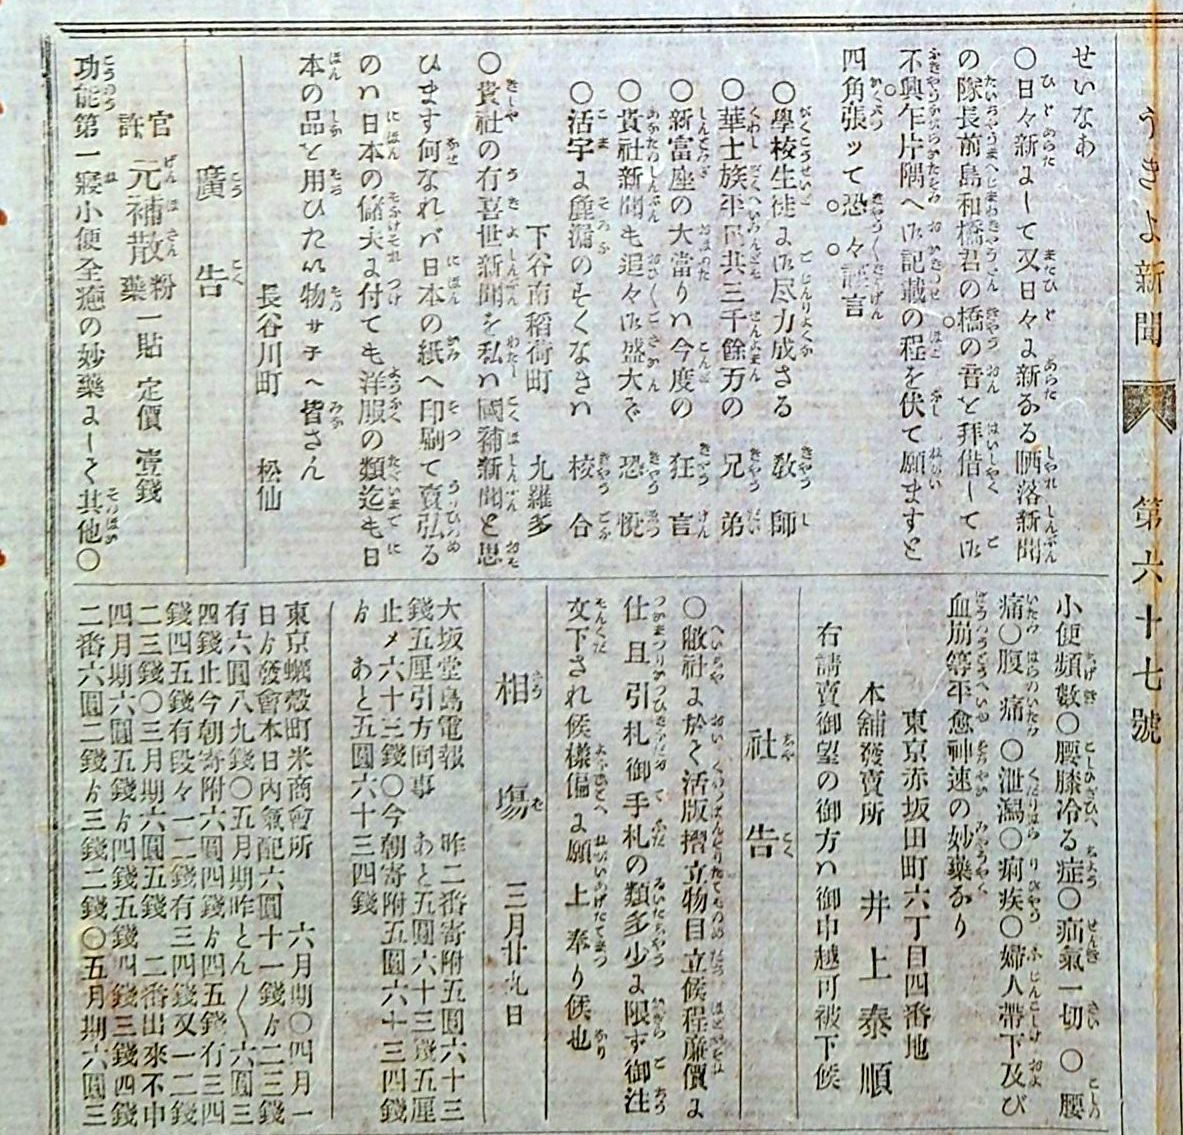 うきよ新聞 第六十七號
せいなあ
〇日々新よして又日々よ新ゐる洒落新聞
の隊長前島和橋君の橋の音を拝借して御
不興乍片隅へ御記載の程を伏て願ますと
四角張ッて恐々謹言
〇學校生徒よ御尽力成さる 敎師
〇華士族平民共三千餘万の 兄弟
〇新富座の大當りハ今度の 狂言
〇貴社新聞も追々御盛大で 恐悦
〇活字よ麁漏のすくなきハ 校合
下谷南稻荷町 九羅多
〇貴社の有喜世新聞を私ハ國補新聞と思
ひます何なれバ日本の紙へ印刷て賣弘る
のハ日本の儲夫よ付ても洋服の類迄も日
本の品を用ひたい物サ子へ皆さん
長谷川町 松仙
廣告
官許 元補散 粉藥 一貼 定價 壹錢
功能第一寢小便全癒の妙藥よして其他〇
小便頻數〇腰膝冷る症〇疝氣一切〇腰
痛〇腹痛〇泄瀉〇痢疾〇婦人帶下及び
血崩等平愈神速の妙藥なり
東京赤坂田町六丁目四番地
本舗發賣所 井上泰順
右請賣御望の御方ハ御申越可被下候
社告
〇敝社よ於て活版摺立物目立候程廉價よ
仕且引札御手札の類多少よ限ず御注
文下され候樣偏よ願上奉り候也
相塲 三月廿九日
大坂堂島電報 昨二番寄附五圓六十三
錢五厘引方同事 あと五圓六十三錢五厘
止〆六十三錢〇今朝寄附五圓六十三四錢
方 あと五圓六十三四錢
東京蠣殻町米商會所 六月期〇四月一
日方發會本日內氣配六圓十一錢方二三錢
有六圓八九錢〇五月期昨とん〱六圓三
四錢止今朝寄附六圓四錢方四五錢有三四
錢四五錢有段々一二錢有三四錢又一二錢
二三錢〇三月期六圓五錢 二番出來不申
四月期六圓五錢方四錢五錢四錢三錢四錢
二番六圓二錢方三錢二錢〇五月期六圓三